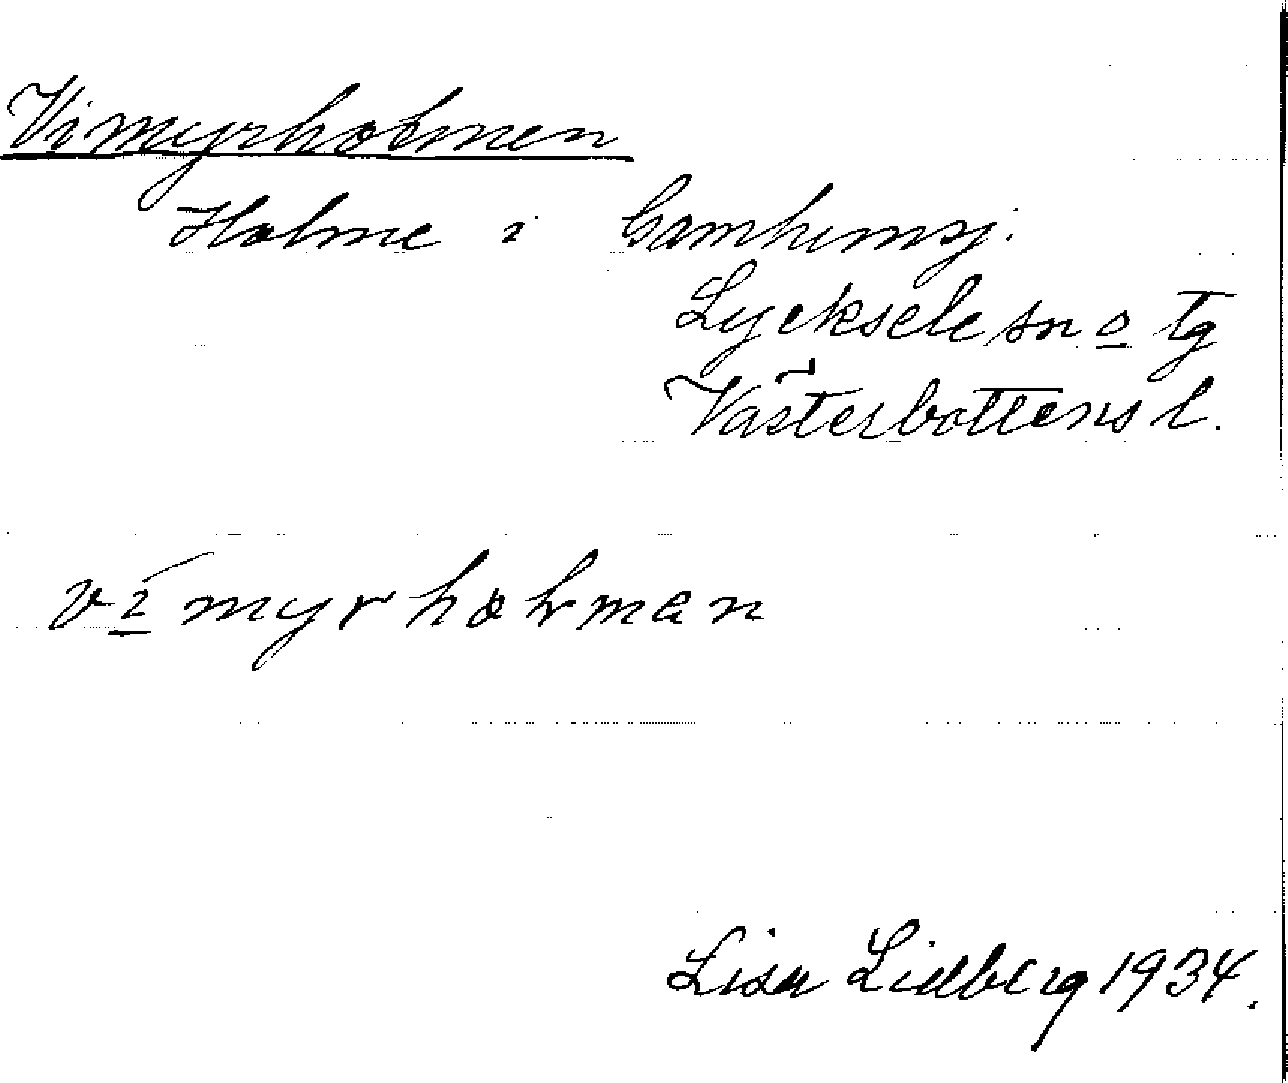 Vimyrholmen
Holme i Gamhemsj.
Lycksele sn o tg
Västerbottens l.
vi myrholman
Lisa Lidberg 1934.